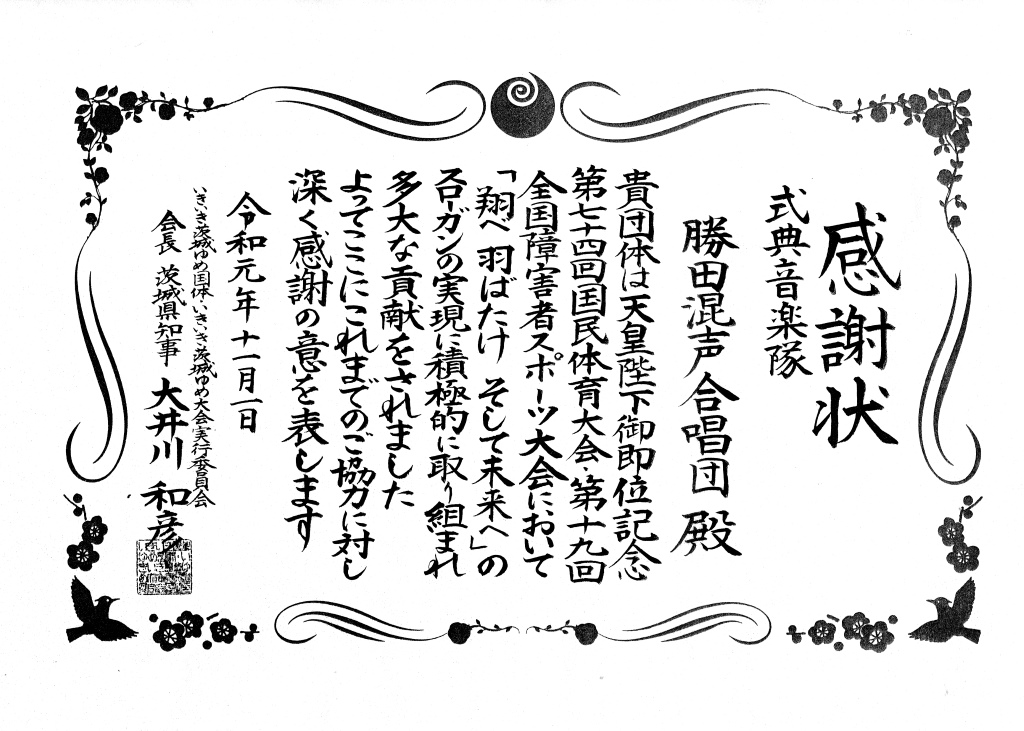 感謝状
式典音楽隊
勝田混声合唱団 殿
貴団体は天皇陛下御即位記念
第七十四回国民体育大会・第十九回
全国障害者スポーツ大会において
「翔べ 羽ばたけ そして未来へ」の
スローガンの実現に積極的に取り組まれ
多大な貢献をされました
よってここにこれまでのご協力に対し
深く感謝の意を表します
令和元年十一月一日
いきいき茨城ゆめ国体・いきいき茨城ゆめ大会実行委員会
会長 茨城県知事 大井川 和彦